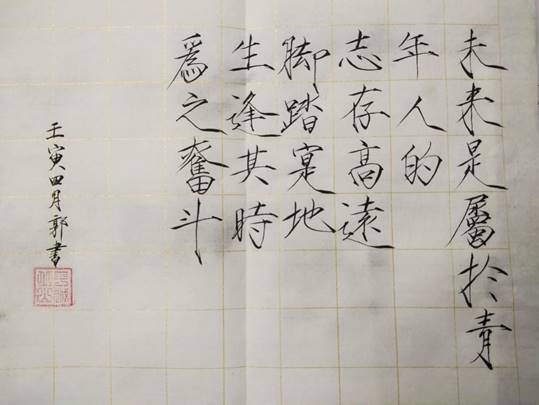 未来是屬於青
年人的
志存高遠
脚踏寔地
生逢其時
爲之奮斗
壬寅四月郭書